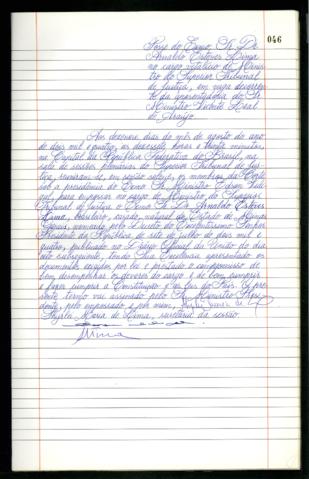 046
Posse do Exmo. Sr. Dr.
Arnaldo Esteves Lima
no cargo vitalício de Minis-
tro do Superior Tribunal
de Justiça, em vaga decorren-
te da aposentadoria do Sr.
Ministro Vicente Leal
de Araújo.
Aos dezenove dias do mês de agosto do ano
de dois mil e quatro, às dezesseis horas e trinta minutos,
na Capital da República Federativa do Brasil, na
sala de sessões plenárias do Superior Tribunal de Jus-
tiça, reuniram-se, em sessão solene, os membros da Corte
sob a presidência do Exmo. Sr. Ministro Edson Vidi-
gal para empossar no cargo de Ministro do Superior
Tribunal de Justiça o Exmo. Sr. Dr. Arnaldo Esteves
Lima, brasileiro, casado, natural do Estado de Minas
Gerais, nomeado pelo Decreto do Excelentíssimo Senhor
Presidente da República de sete de julho de dois mil e
quatro, publicado no Diário Oficial da União do dia
oito subsequente, tendo Sua Excelência apresentado os
documentos exigidos por lei e prestado o compromisso de
bem desempenhar os deveres do cargo e de bem cumprir
e fazer cumprir a Constituição e as leis do País. O pre-
sente termo vai assinado pelo Sr. Ministro Presi-
dente, pelo empossado e por mim,
Maria de Lima, secretária da sessão.